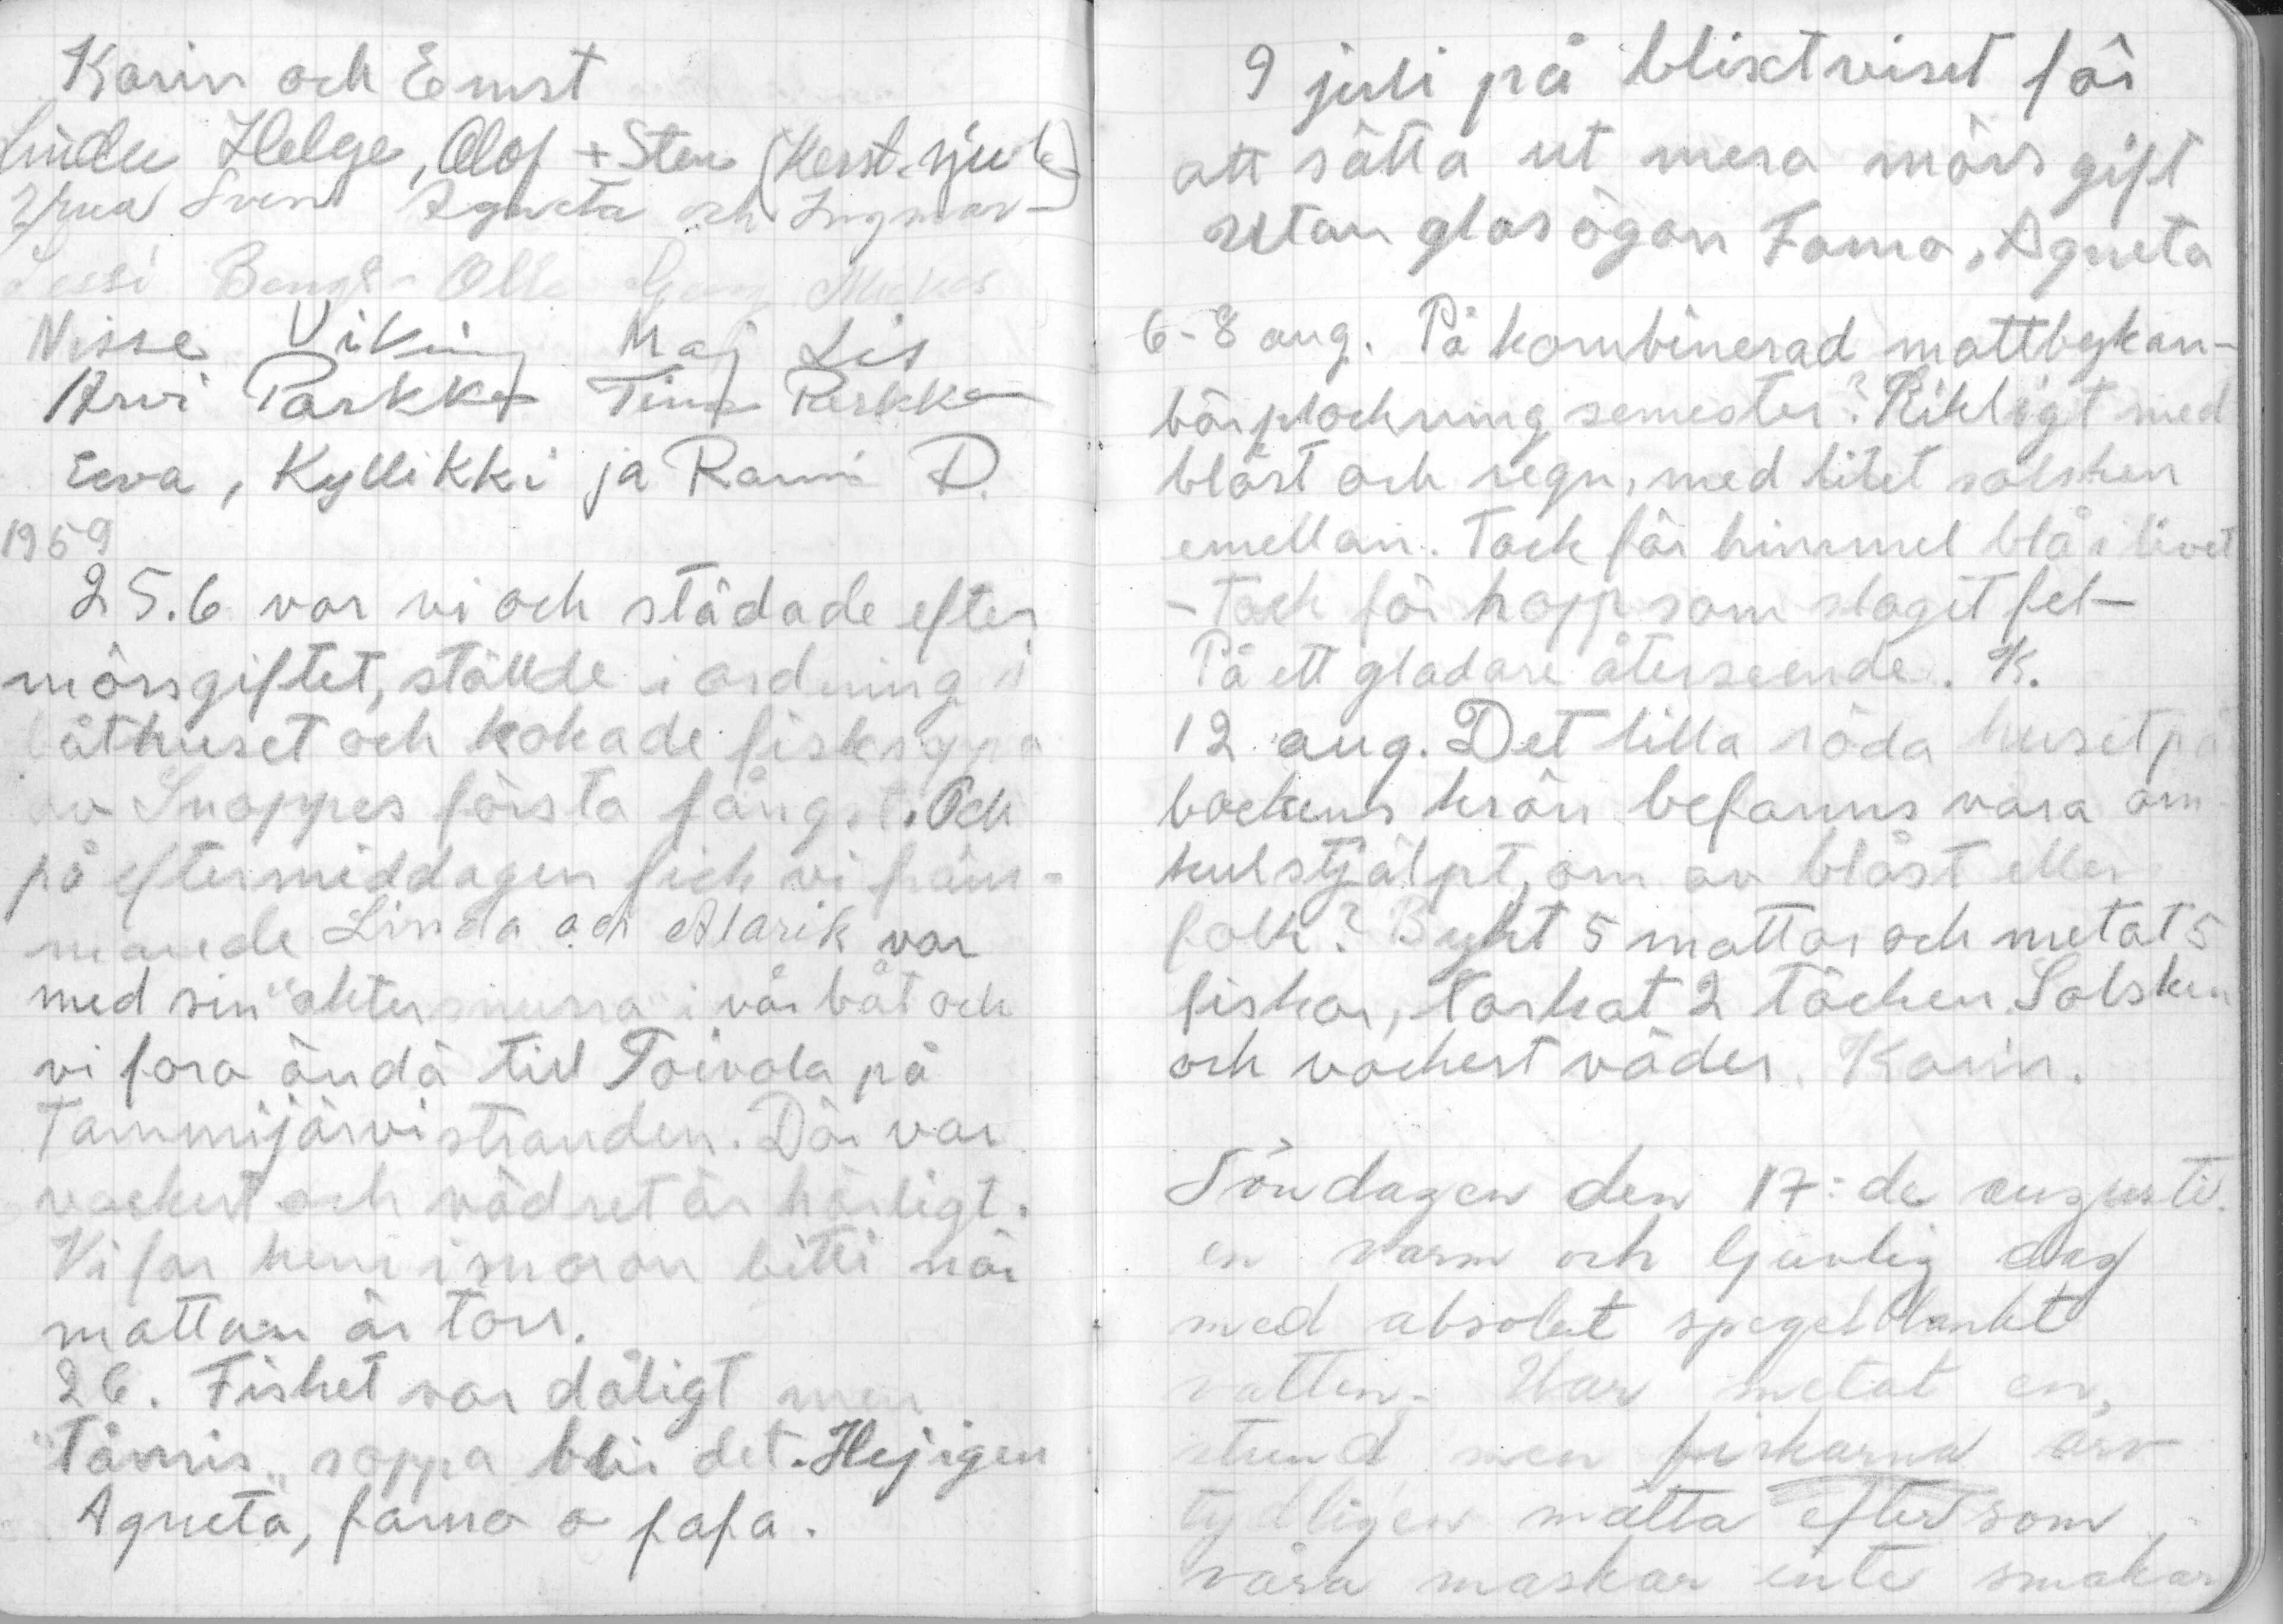 Karin och Ernst
Linda Helge, Olof + Sten (Kerst. sjuk)
Sven Agneta och Ingmar
Lessi Bengt-Olle
Nisse Viking Maj Lis
Arvi Parkka Tina Parkka
Eeva, Kyllikki ja Rauni D.
1959
25.6 var vi och städade efter
mörsgiftet, ställde i ordning i
båthuset och kokade fisksoppa
av Snoppes första fångst. Och
på eftermiddagen fick vi främ-
mande Linda och Alarik var
med sin "aktersnurra" i vår båt och
vi foro ändå till Toivola på
Tammijärvistranden. Där var
vackert och vädret är härligt.
Vi far hem i moron bitti när
mattan är torr.
26. Fisket var dåligt men
"tåmis" soppa blir det. Hej igen
Agneta, famo o fafa.
9 juli på blixtvisit för
att sätta ut mera mörsgift
utan glasögon Famo, Agneta
6-8 aug. På kombinerad mattbykan-
bärplockning semester? Rikligt med
blåst och regn, med litet solsken
emellan. Tack för himmel blå i livet
- tack för hopp som slagit fel -
På ett gladare återseende. K.
12 aug. Det lilla röda huset på
backens krön befanns vara om-
kulstjälpt, om av blåst eller
folk? Bykt 5 mattor och metat 5
fiskar, torkat 2 täcken. Solsken
och vackert väder. Karin.
Söndagen den 17:de augusti.
en varm och ljuvlig dag
med absolut spegelblankt
vatten. Har metat en
stund men fiskarna äro
tydligen mätta eftersom
våra maskar inte smakar